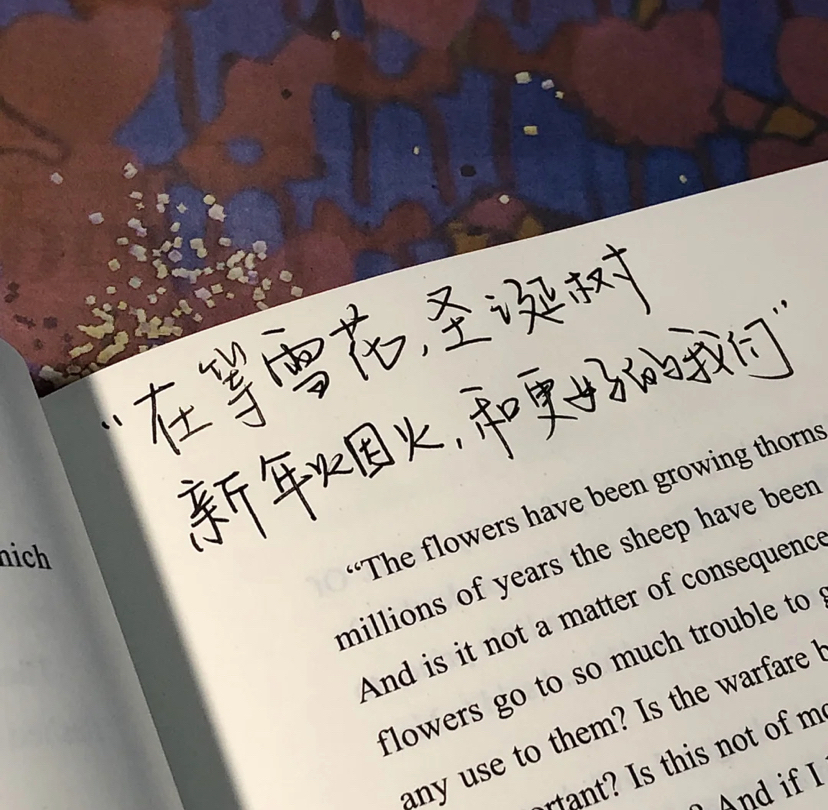 “在等雪花，圣诞树
新年烟火，和更好的我们”
“The flowers have been growing thorns
millions of years the sheep have been
And is it not a matter of consequence
flowers go to so much trouble to g
any use to them? Is the warfare b
rtant? Is this not of mo
And if I
nich